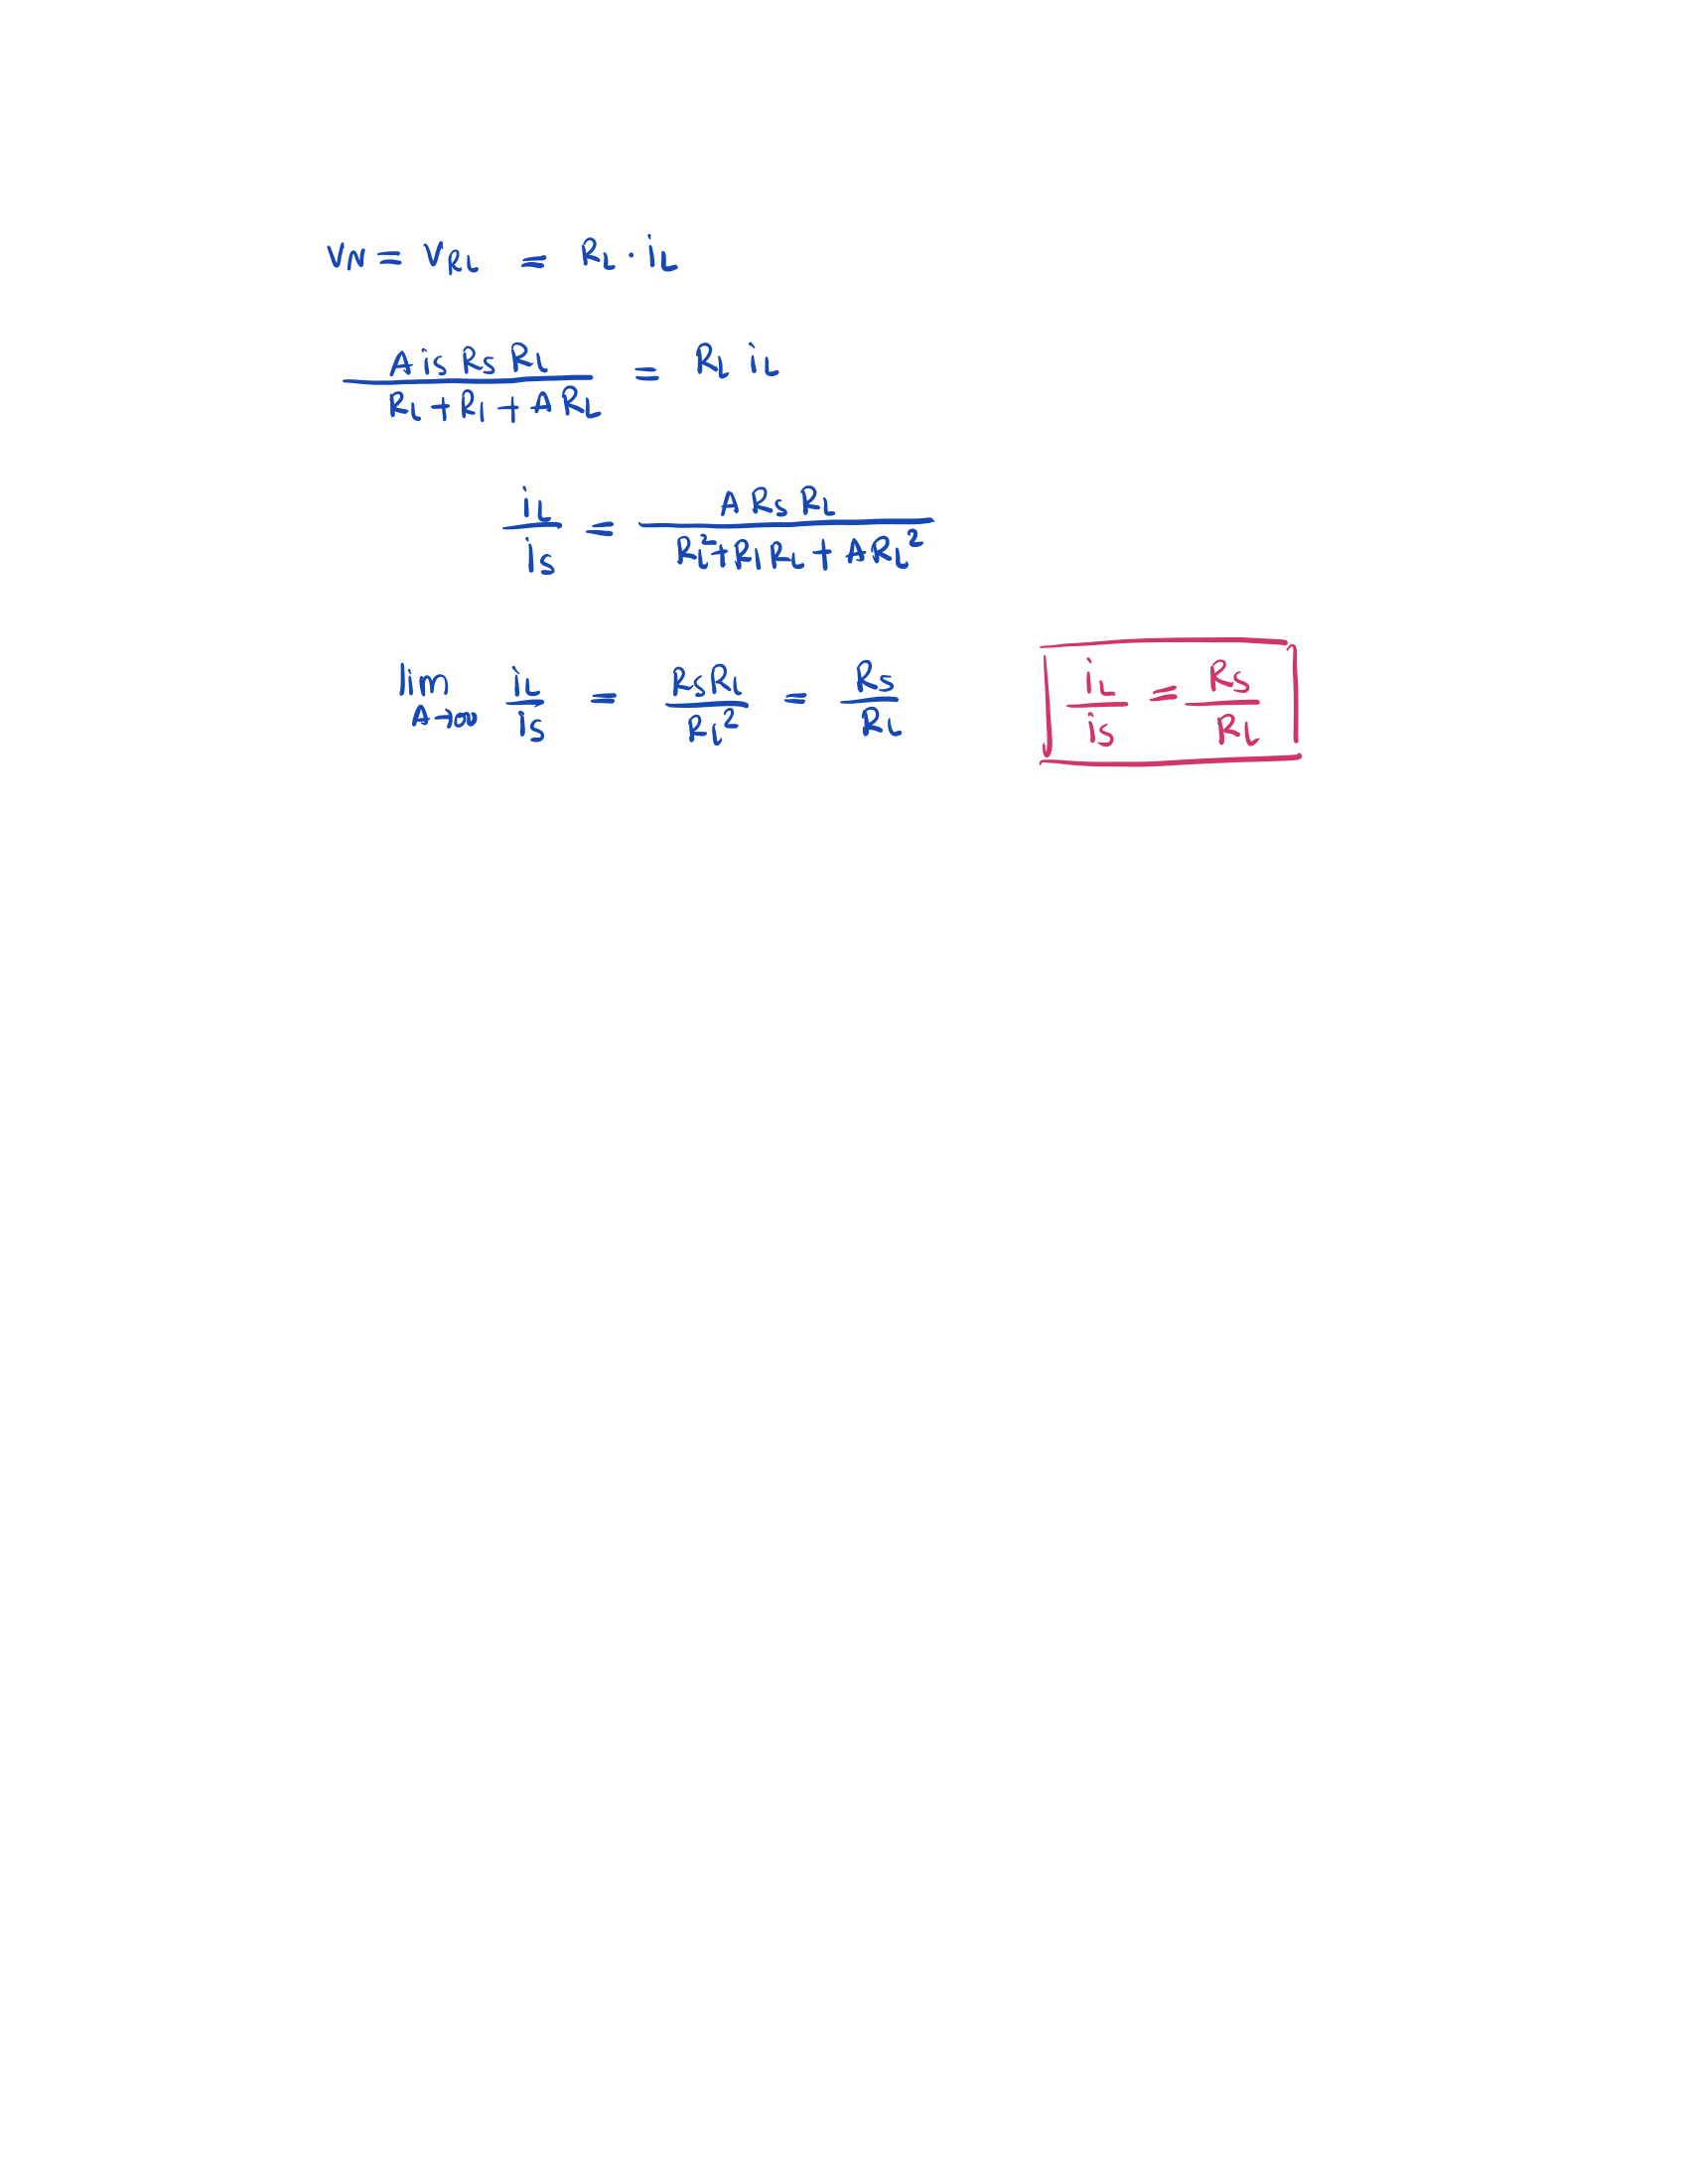 Vn = V_{RL} = R_L · i_L
\frac{A i_s R_s R_L}{R_L + R_1 + A R_L} = R_L i_L
\frac{i_L}{i_s} = \frac{A R_s R_L}{R_L^2 + R_1 R_L + A R_L^2}
\lim_{A→∞} \frac{i_L}{i_s} = \frac{R_s R_L}{R_L^2} = \frac{R_s}{R_L} \boxed{\frac{i_L}{i_s} = \frac{R_s}{R_L}}